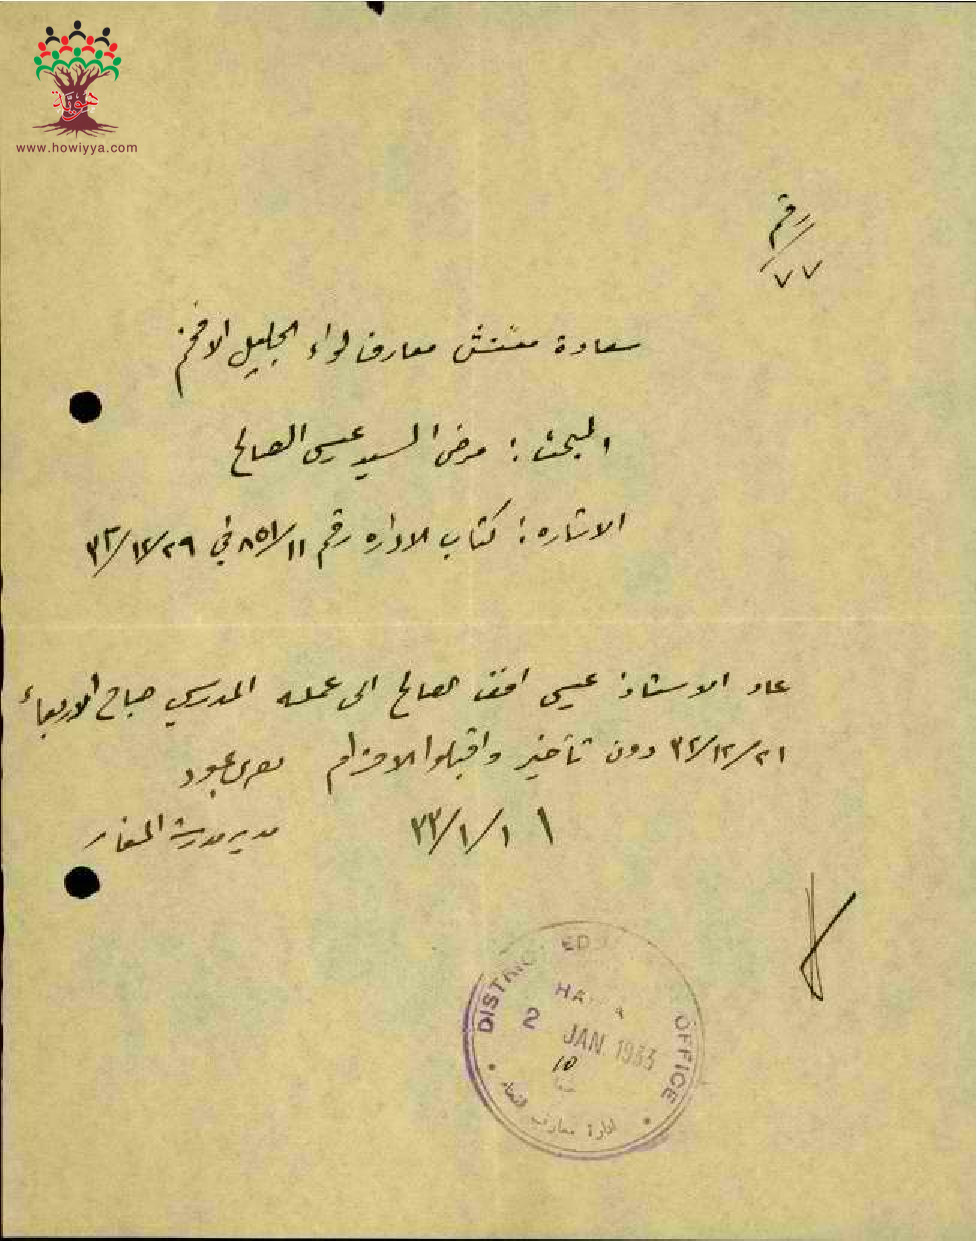 هوية
www.howiyya.com
رقم
٧٧
سعادة مفتش معارف لواء الجليل الافخم
المبحث : مرض السيد عيسى الصالح
الاشاره : كتاب الاداره رقم ٨٥١/١١ في ٣٢/١٢/٢٩
عاد الاستاذ عيسى افندي الصالح الى عمله المدرسي صباح الاربعاء
٣٢/١٢/٢١ دون تأخير واقبلوا الاحترام
مدير مدرسة المغار
٣٣/١/١
DISTRICT OFFICE
HAIFA
2 JAN 1933
ادارة معارف